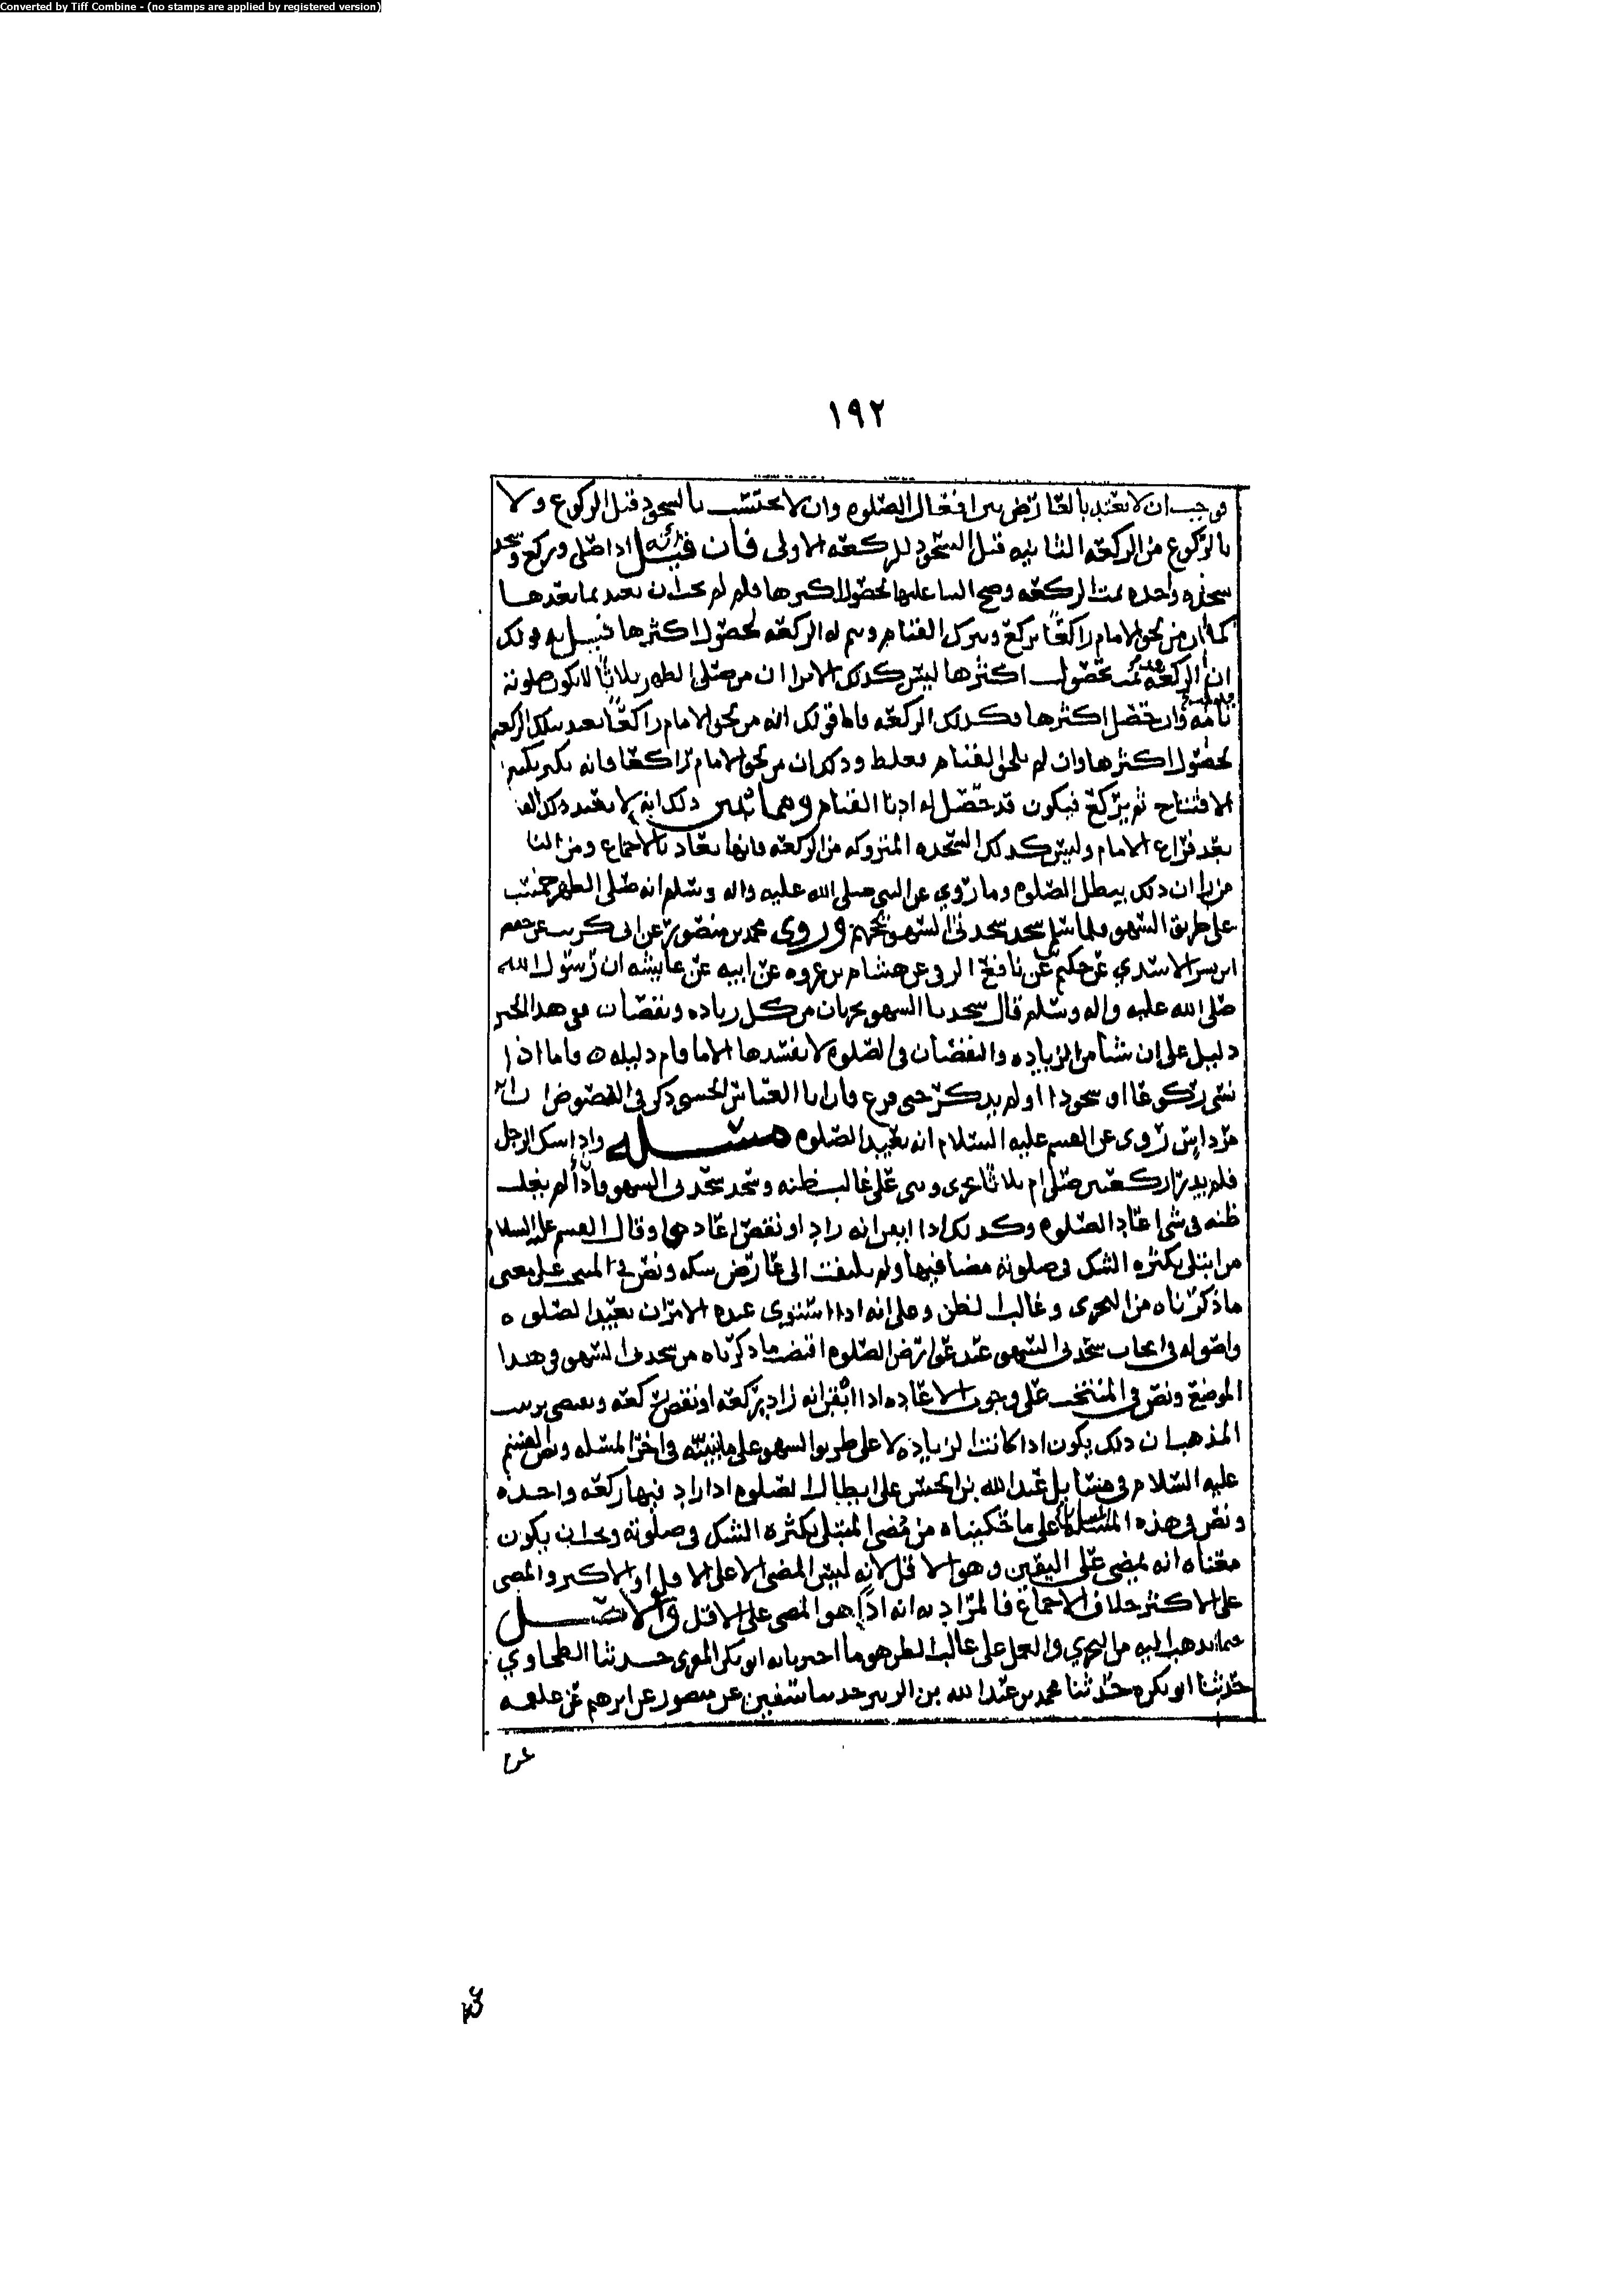 Converted by Tiff Combine - (no stamps are applied by registered version)
١٩٢
فوجب ان لا يعتد بالعارض بين افعال الصلوه وان لا يحتسب بالسجود قبل الركوع ولا
بالركوع من الركعه الثانيه قبل السجود للركعه الاولى فان قيل انه اذا صلى وركع وسجد
سجده واحده تمت الركعه وصح البنا عليها لحصول اكثرها فلم لم يجز ان يعتد بما بعدها
كما ان من لحق الامام راكعًا يركع ويترك القيام وتتم له الركعه لحصول اكثرها قيل له قولك
ان الركعه تمت بحصول اكثرها ليس كذلك الا ترا ان من صلى الظهر ثلاثًا لا تكون صلوته
تامه وان حصل اكثرها فكذلك الركعه واما قولك انه من لحق الامام راكعًا يعتد بتلك الركعه
لحصول اكثرها وان لم يلحق القيام فغلط وذلك ان من لحق الامام راكعا فانه يكبر تكبير
الافتتاح ثم يركع فيكون قد حصل له ادنا القيام ومما يبين ذلك انه لا يعتد ذلك
بعد فراغ الامام وليس كذلك السجده المتروكه من الركعه فانها تعاد بالاجماع ومن الناس
من يرا ان ذلك يبطل الصلوه وما روي عن النبي صلى الله عليه واله وسلم انه صلى الظهر خمسًا
على طريق السهو فلما سلم سجد سجدتي السهو وروى محمد بن منصور عن ابي كريب عن جعفر
الاسدي عن حكيم عن نافع الرقي عن هشام بن عروه عن ابيه عن عايشه ان رسول الله
صلى الله عليه واله وسلم قال سجدتا السهو تجزيان من كل زياده ونقصان ففي هذا الخبر
دليل على ان شيأ من الزياده والنقصان في الصلوه لا يفسدها الا ما قام دليله ه فاما اذا
نسي ركوعا او سجودا او لم يذكر حتى فرغ فان ابا العباس الحسني ذكر في النصوص ان
مرداس روى عن القسم عليه السلام انه يعيد الصلوه مسئله واذا شك الرجل
فلم يدر اركعتين صلى ام ثلاثا تحرى وبنى على غالب ظنه وسجد سجدتي السهو فاذا لم يغلب
ظنه في شيء اعاد الصلوه وكذلك اذا ايقن انه زاد او نقص اعادها وقال القسم عليه السلام
من ابتلي بكثره الشك في صلوته مضا فيها ولم يلتفت الى عارض شكه ونص في المنتخب على معنى
ما ذكرناه من التحري وغالب الظن وعلى انه اذا استوى عنده الامران يعيد الصلوه
واصوله في ايجاب سجدتي السهو عند عوارض الصلوه اقتضت ما ذكرناه من سجدتي السهو في هذا
الموضع ونص في المنتخب على وجوب الاعاده اذا ايقن انه زاد ركعه او نقص ركعه ويقتضي ترتيب
المذهب ان ذلك يكون اذا كانت الزياده لا على طريق السهو على ما نبينه في اخر المسئله ونص القسم
عليه السلام في مسايل عبد الله بن الحسن على ابطال الصلوه اذا زاد فيها ركعه واحده
ونص في هذه المسائل على ما حكيناه من مضي المبتلى بكثره الشك في صلوته ويجب ان يكون
معناه انه يمضي على اليقين وهو الاقل لانه ليس المضي الا على الاقل او الاكثر والمضي
على الاكثر خلاف الاجماع فالمراد به انه اذًا هو المضي على الاقل والاصل
فيما نذهب اليه من التحري والعمل على غالب الظن هو ما اخبرنا به ابو بكر المقري حدثنا الطحاوي
حدثنا ابو بكره حدثنا محمد بن عبد الله بن الزبير حدثنا سفين عن منصور عن ابرهيم عن علقمه
عن